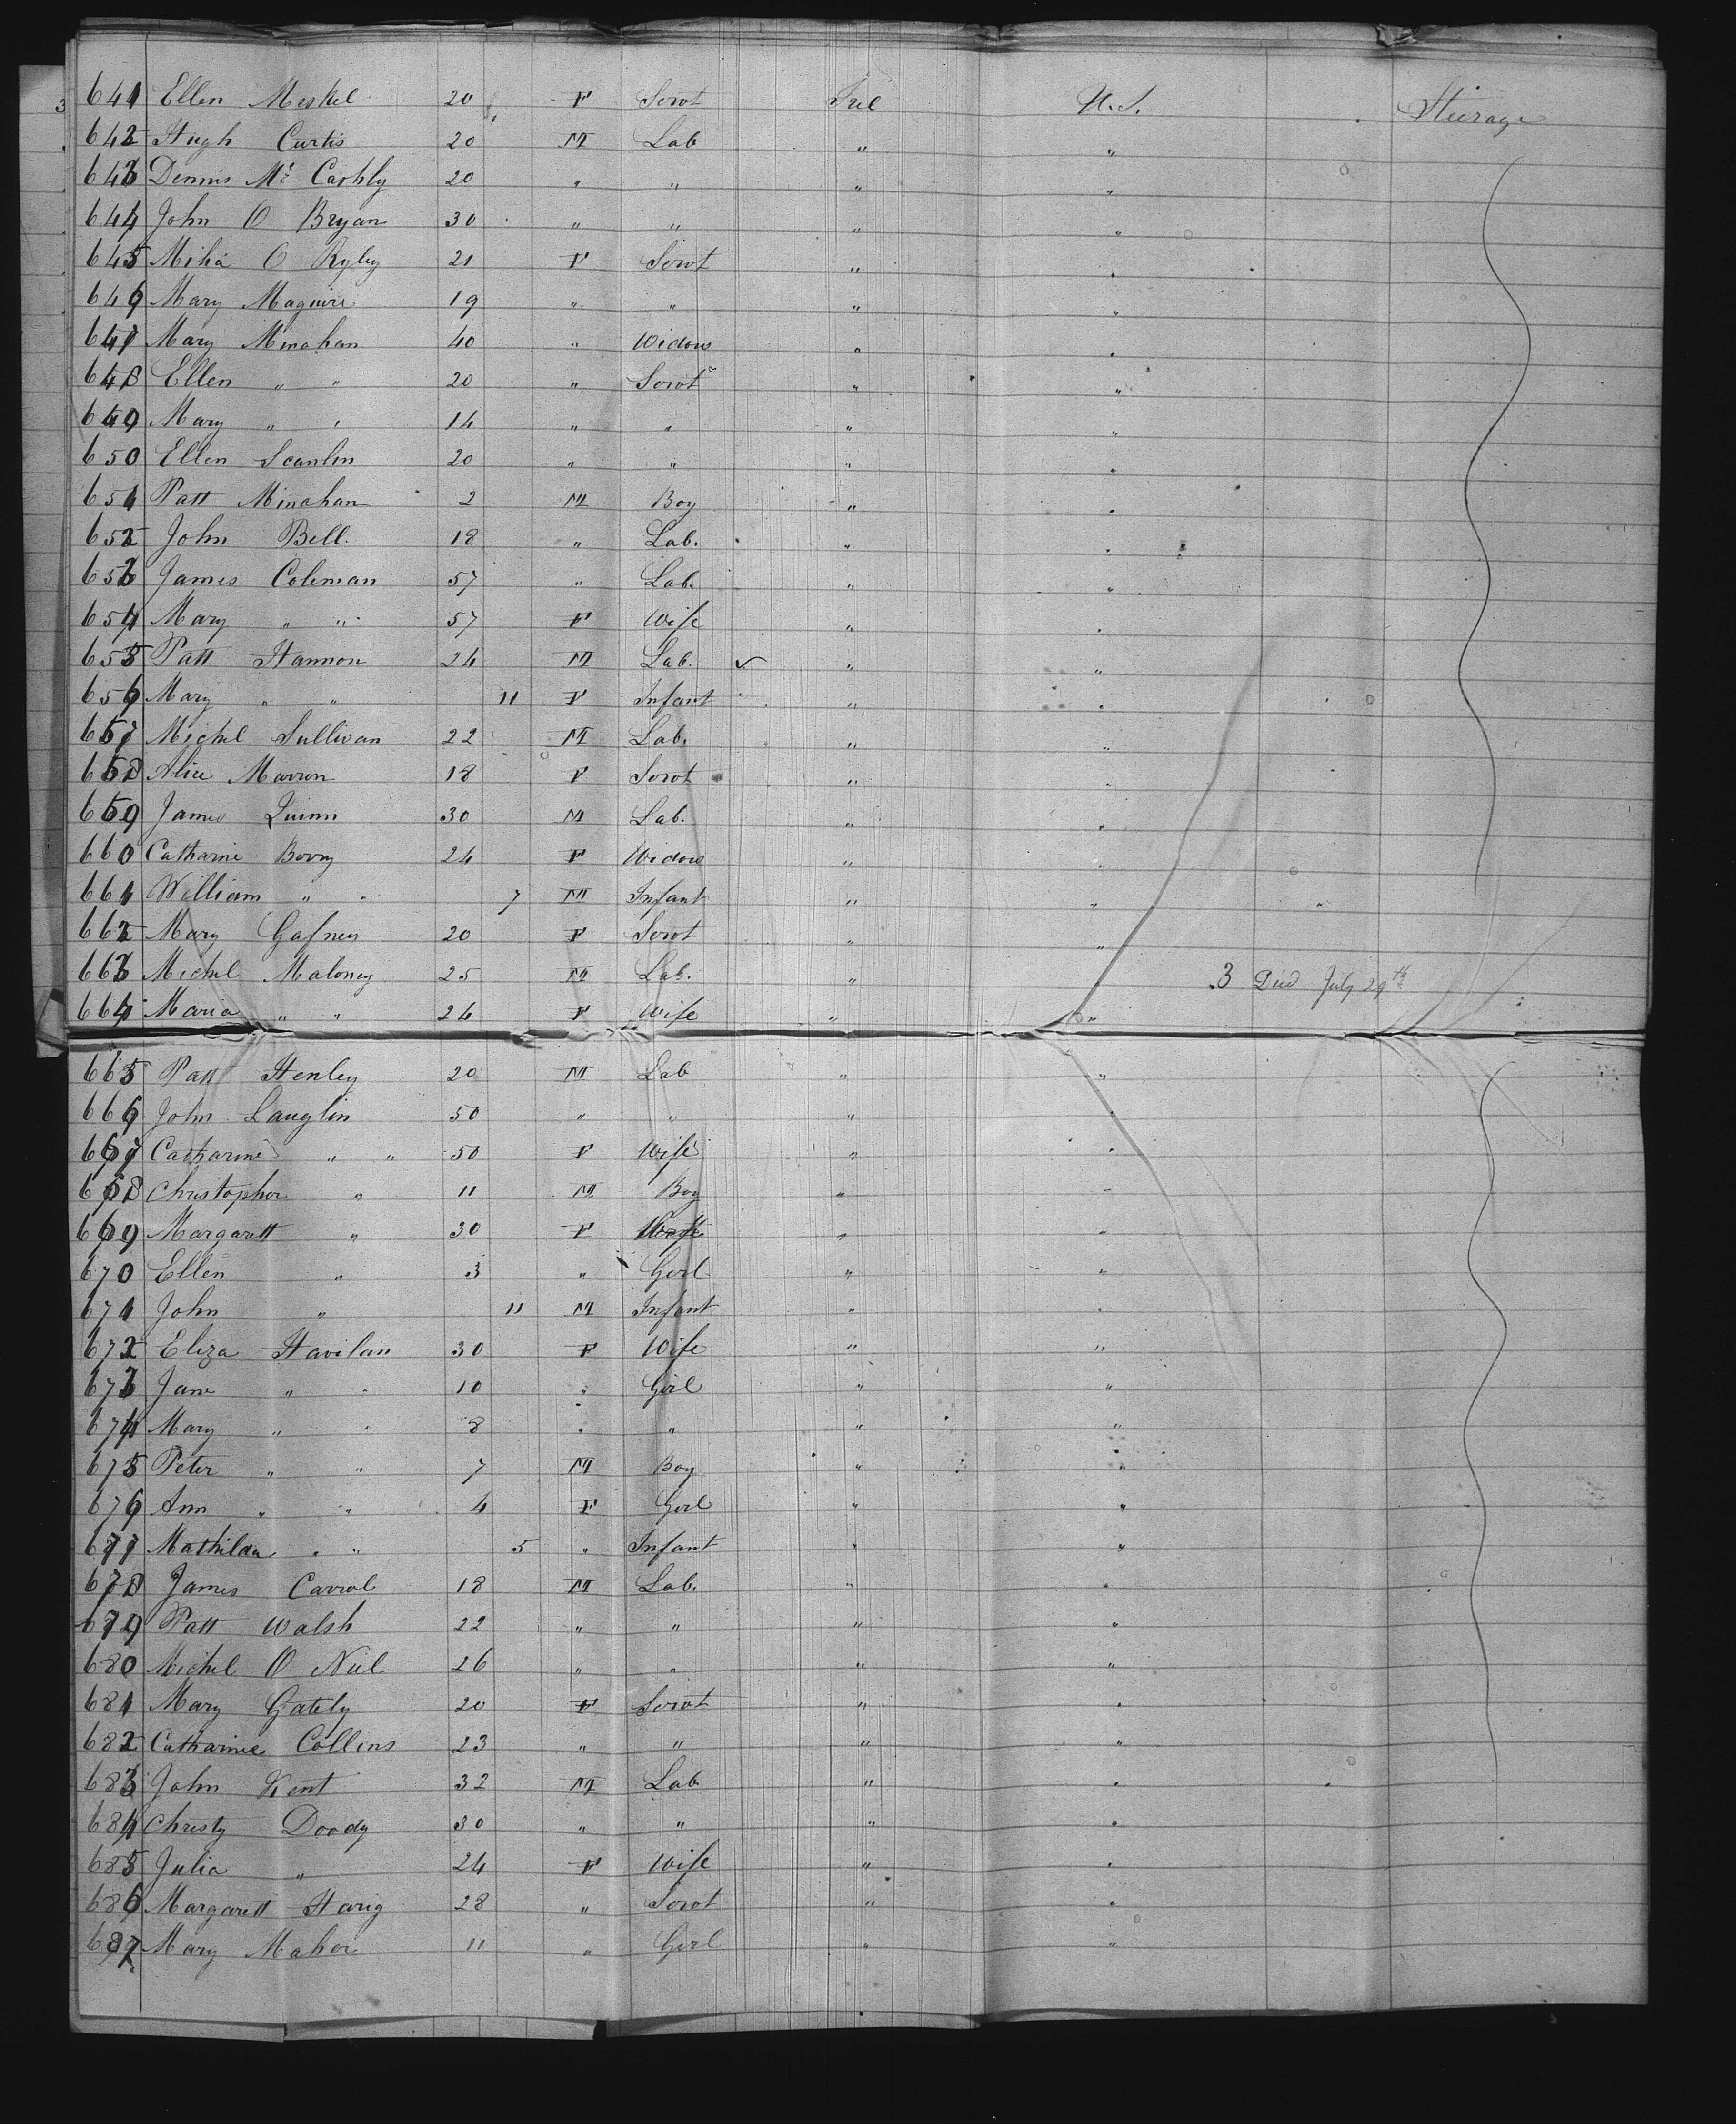 641 Ellen Meskel 20 F Servt Irel U.S. Steerage
642 Hugh Curtis 20 M Lab " "
643 Dennis Mc Carthly 20 " " " "
644 John O Bryan 30 " " " "
645 O Ryley 21 F Servt " "
646 Mary Maguire 19 " " " "
647 Mary Minahan 40 " Widow " "
648 Ellen " " 20 " Servt " "
649 Mary " " 14 " " " "
650 Ellen Scanlin 20 " " " "
651 Patt Minahan 2 M Boy " "
652 John Bell 18 " Lab. " "
653 James Coleman 57 " Lab. " "
654 Mary " " 57 F Wife " "
655 Patt Hannon 24 M Lab. " "
656 Mary " " 11 F Infant " "
657 Michel Sullivan 22 M Lab. " "
658 Alice Marron 18 F Servt " "
659 James Quinn 30 M Lab. " "
660 Catharine 24 F Widow " "
661 William " " 7 M Infant " " "
662 Mary Gafney 20 F Servt " "
663 Michel Maloney 25 M Lab. " 3 Died July 29th
664 Maria " " 24 F Wife " "
665 Patt Henley 20 M Lab " "
666 John Lauglin 50 " " " "
667 Catharine " " 50 F Wife " "
668 Christopher " 11 M Boy " "
669 Margarett " 30 F Wife " "
670 Ellen " 3 " Girl " "
671 John " 11 M Infant " "
672 Eliza Havilan 30 F Wife " "
673 Jane " " 10 " Girl " "
674 Mary " " 8 " " " "
675 Peter " " 7 M Boy " "
676 Ann " " 4 F Girl " "
677 Mathilda " " 5 " Infant " "
678 James Carrol 18 M Lab. " "
679 Patt Walsh 22 " " " "
680 Michel O Niel 26 " " " "
681 Mary Gately 20 F Servt " "
682 Catharine Collins 23 " " " "
683 John Kent 32 M Lab " "
684 Christy Doody 30 " " " "
685 Julia " 24 F Wife " "
686 Margarett Harig 28 " Servt " "
687 Mary Maher 11 " Girl " "